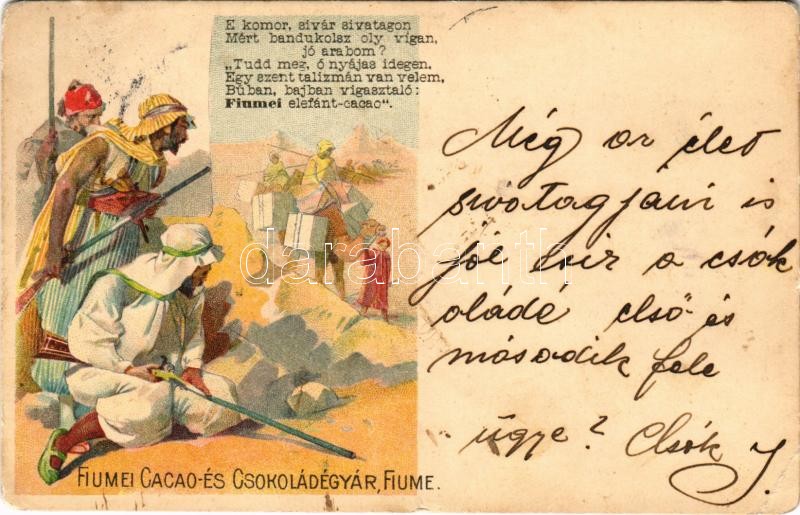 E komor, sivár sivatagon
Mért bandukolsz oly vigan,
jó arabom?
„Tudd meg, ó nyájas idegen.
Egy szent talizmán van velem,
Búban, bajban vigasztaló:
Fiumei elefánt-cacao“.
Még az élet
sivatagjain is
jól esik a csók
oládé első és
második fele
ügye? Csók J.
FIUMEI CACAO-ÉS CSOKOLÁDÉGYÁR, FIUME.
darabanth